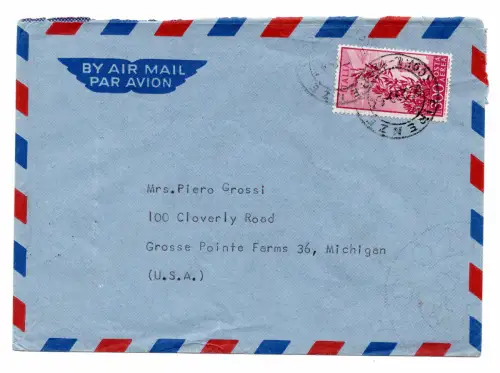 BY AIR MAIL
PAR AVION
300 POSTA
AEREA
Mrs.Piero Grossi
100 Cloverly Road
Grosse Pointe Farms 36, Michigan
(U.S.A.)